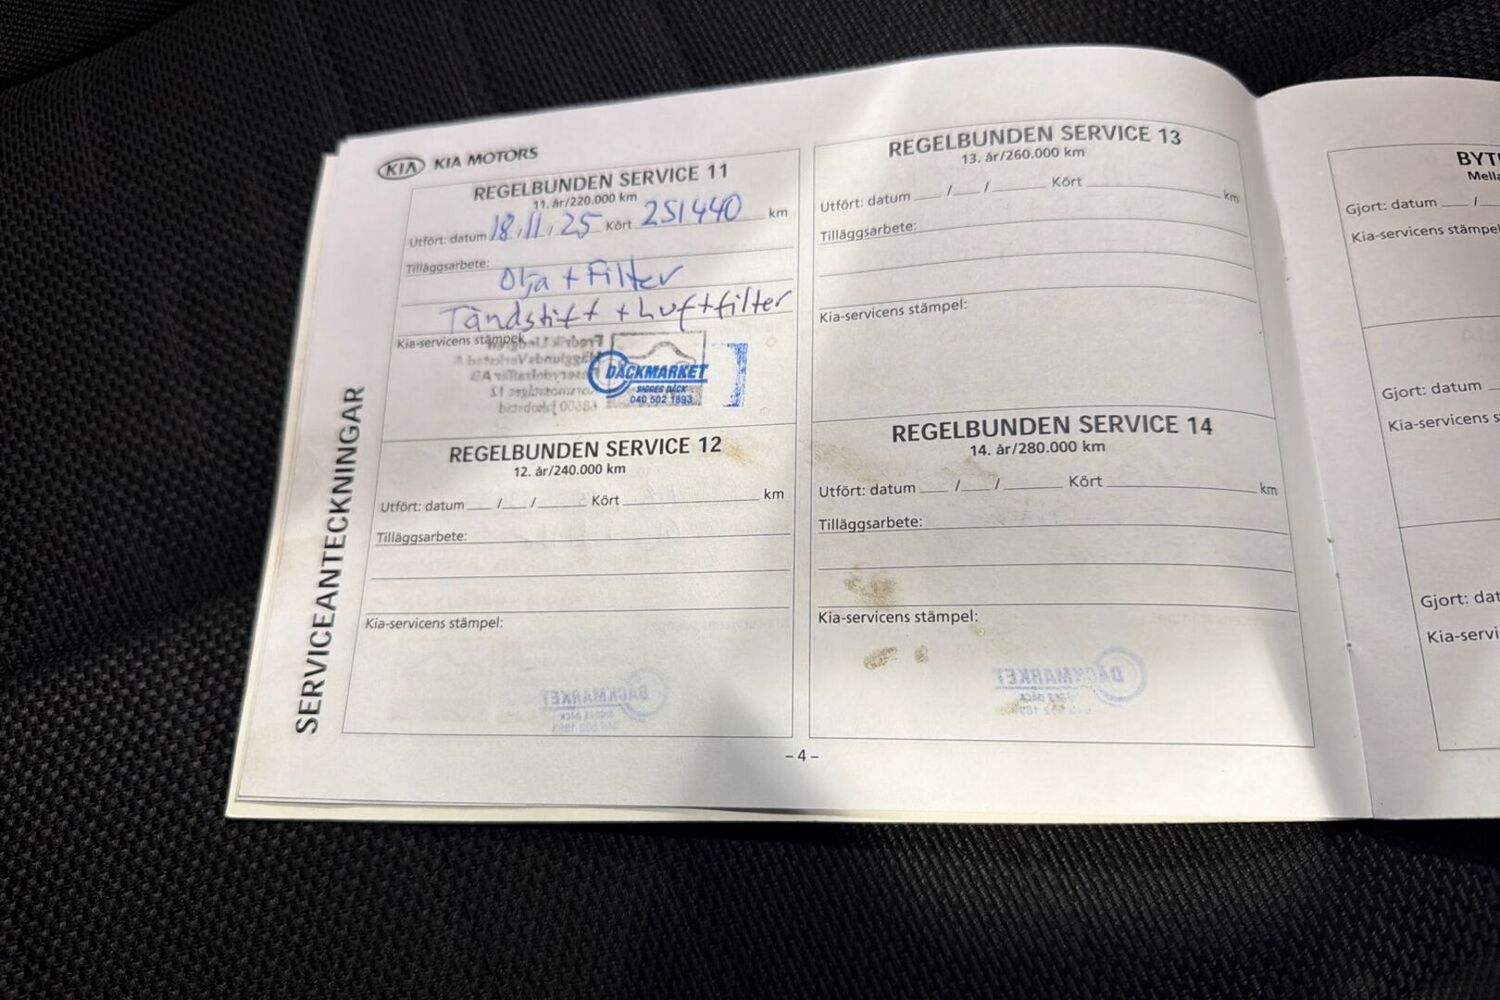 KIA KIA MOTORS
SERVICEANTECKNINGAR
REGELBUNDEN SERVICE 11
11. år/220.000 km
Utfört: datum 18/11/25 Kört 251440 km
Tilläggsarbete:
Olja + Filter
Tändstift + Luftfilter
Kia-servicens stämpel:
DÄCKMARKET
SIGGES DÄCK
040 502 1893
REGELBUNDEN SERVICE 12
12. år/240.000 km
Utfört: datum ___ / ___ / ______ Kört ______ km
Tilläggsarbete:
Kia-servicens stämpel:
REGELBUNDEN SERVICE 13
13. år/260.000 km
Utfört: datum ___ / ___ / ______ Kört ______ km
Tilläggsarbete:
Kia-servicens stämpel:
REGELBUNDEN SERVICE 14
14. år/280.000 km
Utfört: datum ___ / ___ / ______ Kört ______ km
Tilläggsarbete:
Kia-servicens stämpel:
– 4 –
Gjort: datum ___ /
Gjort: datum
Kia-servicens
Gjort: